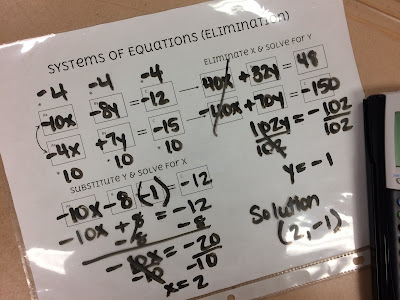 SYSTEMS OF EQUATIONS (ELIMINATION)
ELIMINATE X & SOLVE FOR Y
-4 -4 -4
-10x -8y = -12 → 40x + 32y = 48
-4x +7y = -15 → -40x + 70y = -150
·10 ·10 ·10
102y = -102
102 102
y = -1
SUBSTITUTE Y & SOLVE FOR X
-10x - 8 (-1) = -12
-10x + 8 = -12
-8 -8
-10x = -20
-10 -10
x = 2
Solution
(2, -1)